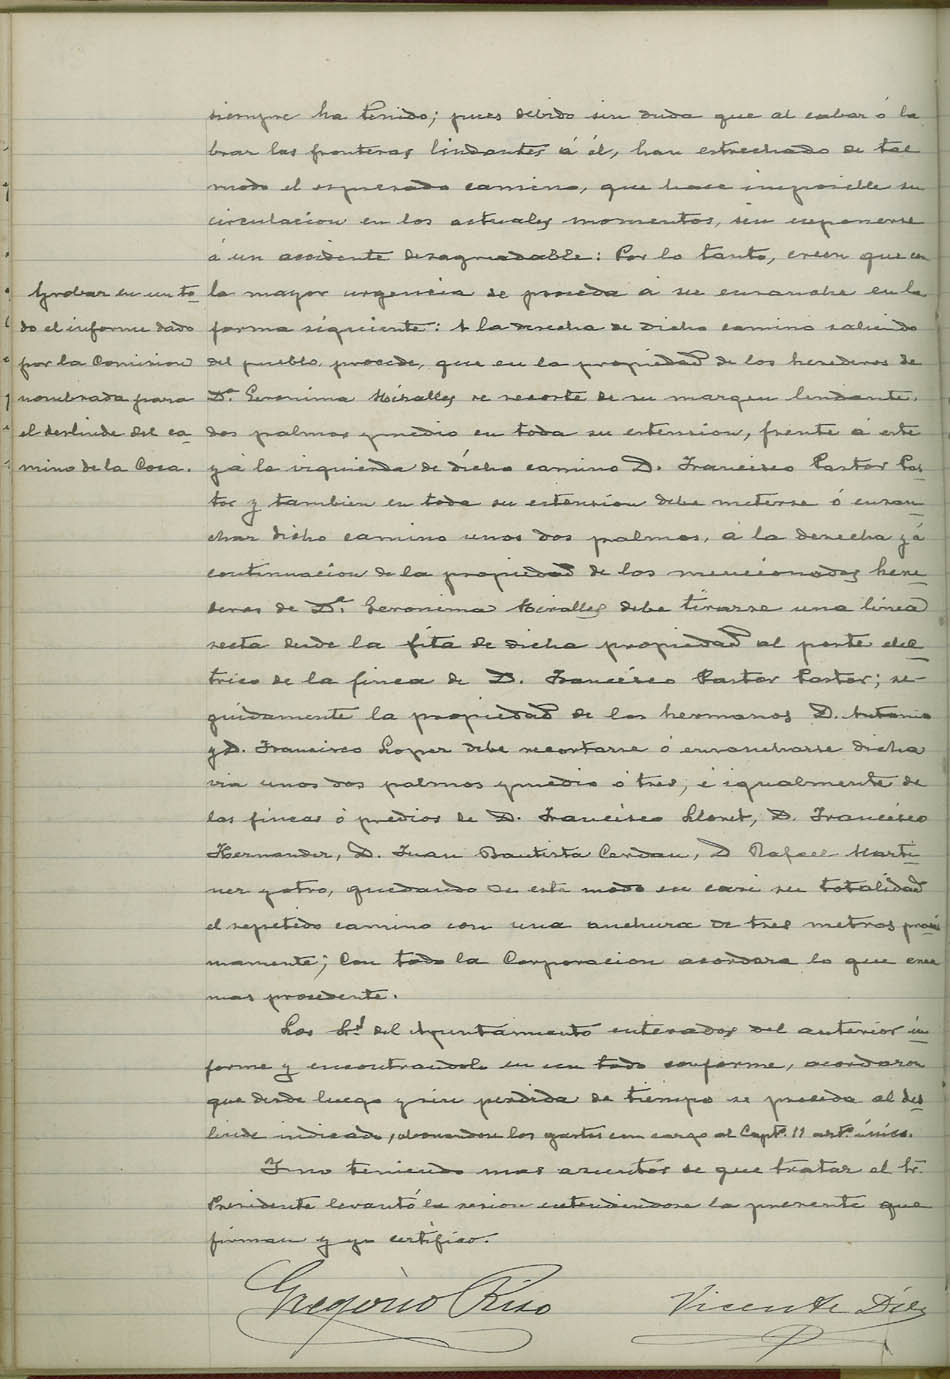 siempre ha tenido; pues debido sin duda que al cabar ó la
brar las fronteras lindantes á él, han estrechado de tal
modo el espresado camino, que hace imposible su
circulacion en los actuales momentos, sin esponerse
á un accidente desagradable: Por lo tanto, creen que con
la mayor urgencia se proceda á su ensanche en la
forma siguiente: A la derecha de dicho camino saliendo
del pueblo, procede, que en la propiedad de los herederos de
Dª. Geronima Miralles se recorte de su margen lindante,
dos palmos y medio en toda su estension, frente á este
y á la izquierda de dicho camino D. Francisco Pastor Pas-
tor y tambien en toda su estension debe meterse ó ensan-
char dicho camino unos dos palmos, á la derecha y á
continuacion de la propiedad de los mencionados here-
deros de Dª. Geronima Miralles debe tirarse una linea
recta desde la fita de dicha propiedad al poste eléc-
trico de la finca de D. Francisco Pastor Pastor; se-
guidamente la propiedad de los hermanos D. Antonio
y D. Francisco Lopez debe recortarse ó ensancharse dicha
via unos dos palmos y medio ó tres, é igualmente de
las fincas ó predios de D. Francisco Lloret, D. Francisco
Hernandez, D. Juan Bautista Cerdan, D Rafael Marti-
nez y otro, quedando de este modo en casi su totalidad
el repetido camino con una anchura de tres metros proxi
mamente; Con todo la Corporacion acordara lo que crea
mas procedente.
Aprobar en un to
do el informe dado
por la Comision
nombrada para
el deslinde del ca-
mino de la Coca.
Los Srs. del Ayuntamiento enterados del anterior in-
forme y encontrandolo en un todo conforme, acordaron
que desde luego y sin perdida de tiempo se proceda al des-
linde indicado, abonandose los gastos con cargo al Capt. 11 art. único.
Y no teniendo mas asuntos de que tratar el Sr.
Presidente levantó la sesion estendiendose la presente que
firman y yo certifico.
Gregorio Riso
Vicente Díez